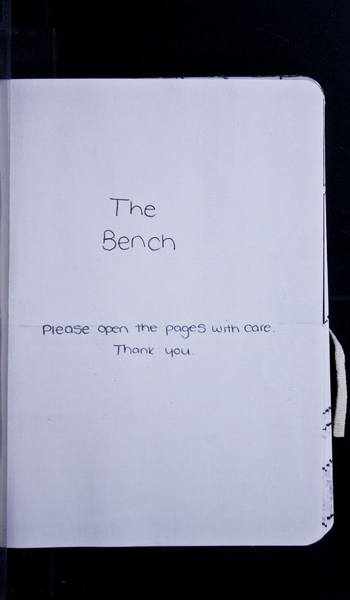 The
Bench
Please open the pages with care.
Thank you.